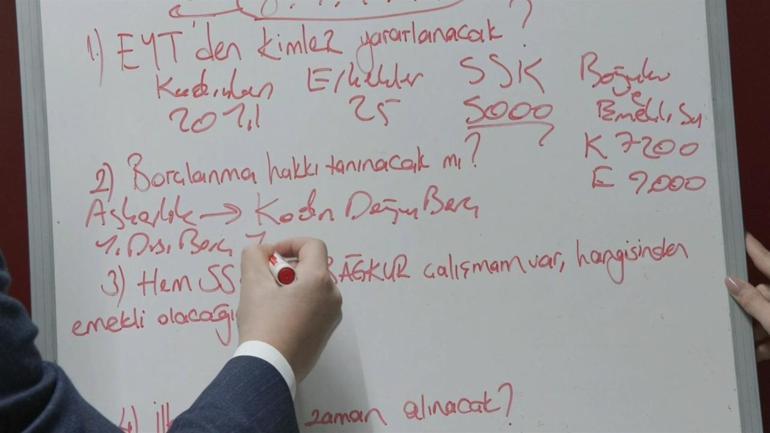 1) EYT'den kimler yararlanacak?
Kadınlar Erkekler SSK Bağkur
20 Yıl 25 5000 Emekli, Sa
? K 7200
E 9000
2) Borçlanma hakkı tanınacak mı?
Askerlik → Kadın Doğum Borç
Y. Dışı Borç
3) Hem SS BAĞKUR çalışmam var, hangisinden
emekli olacağı
4) İl zaman alınacak?